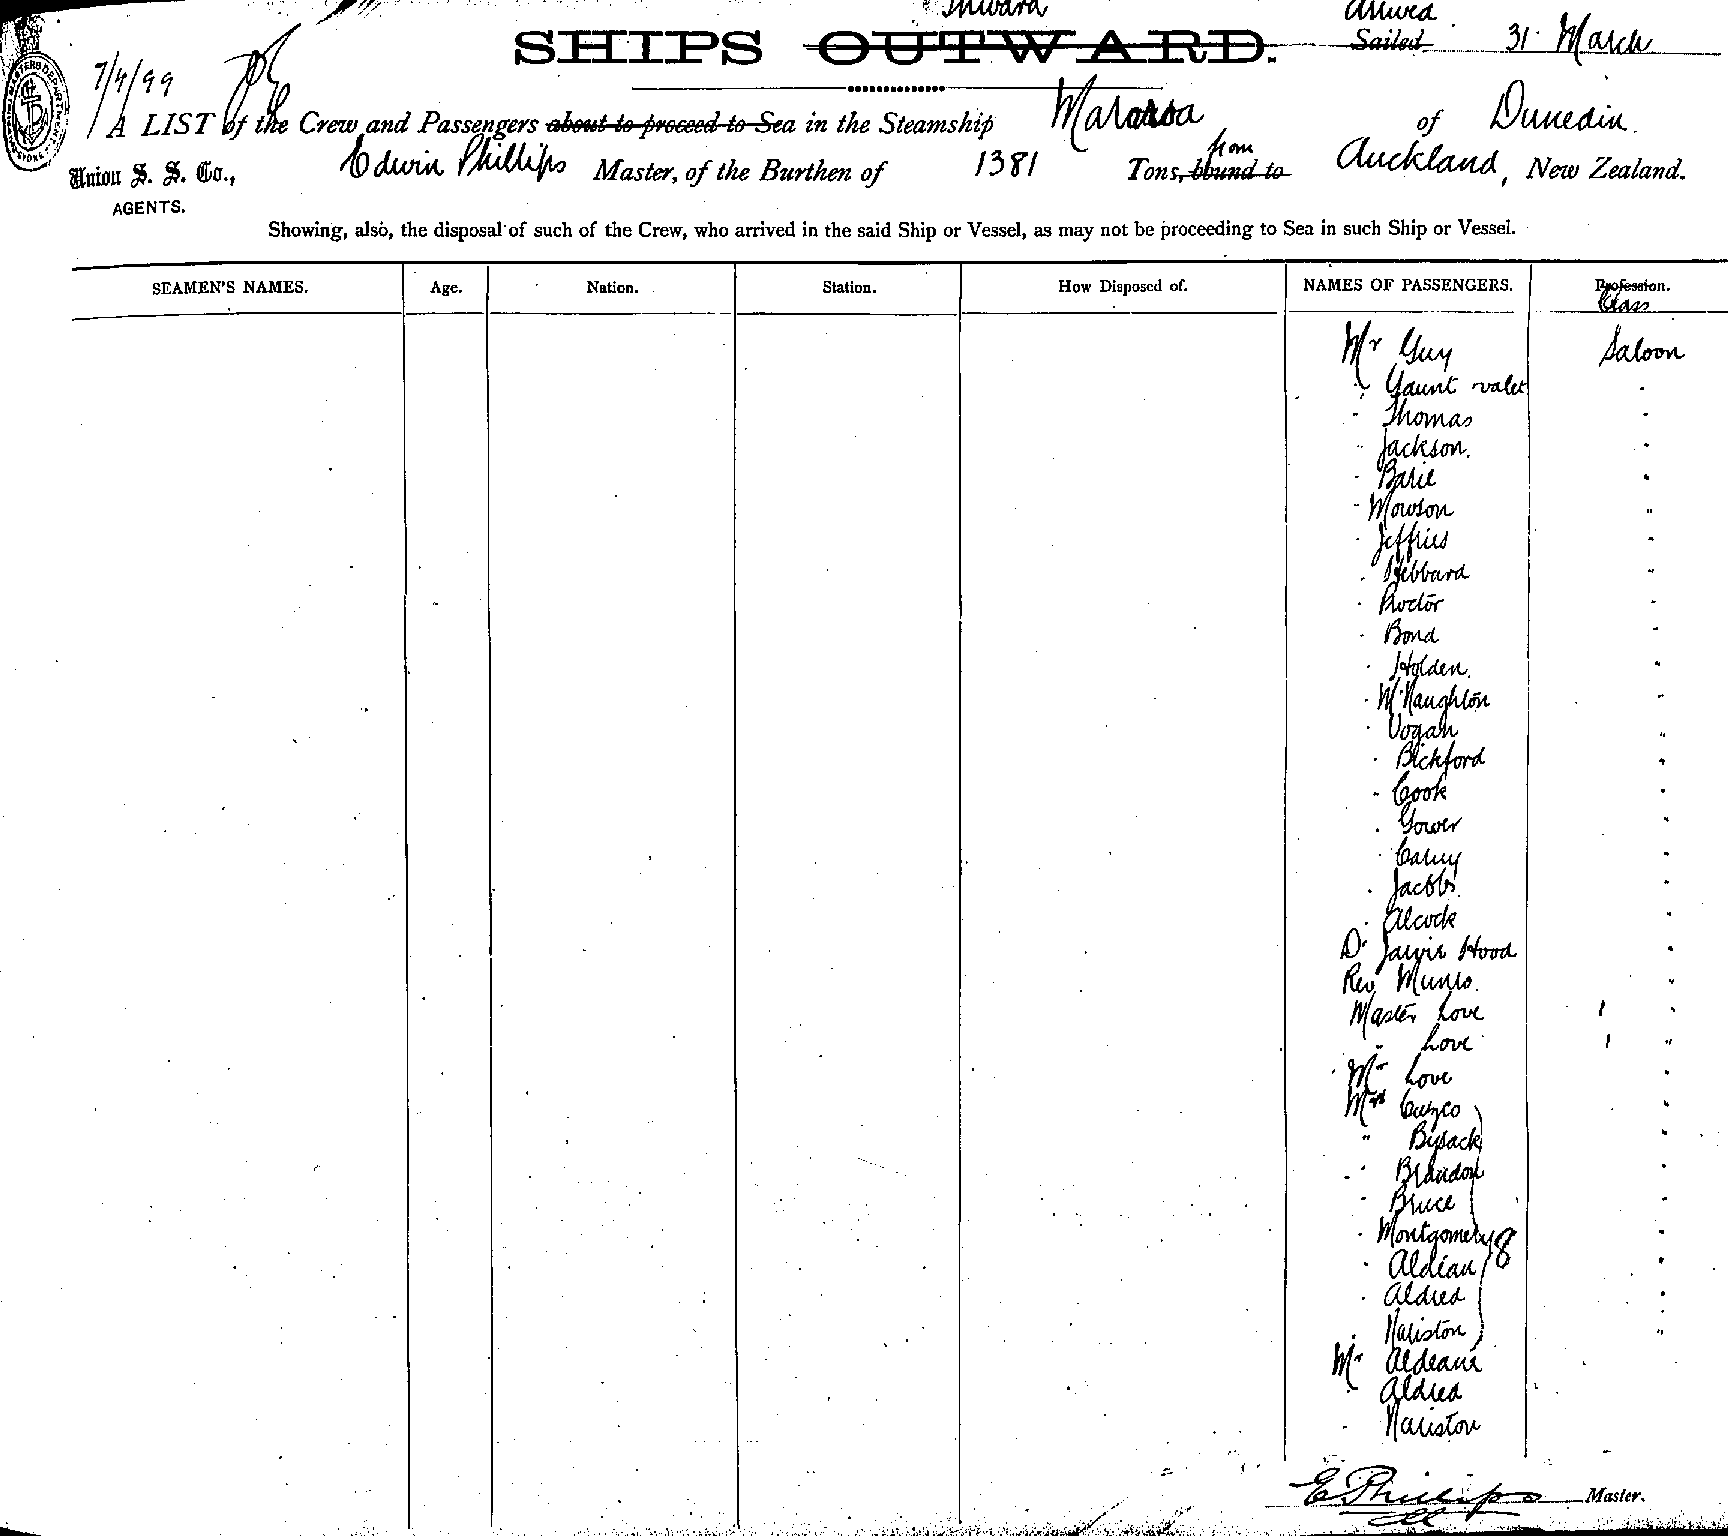 Inward Arrived
SHIPS OUTWARD. Sailed 31 March
7/4/99
A LIST of the Crew and Passengers about to proceed to Sea in the Steamship Mararoa of Dunedin.
Edwin Phillips Master, of the Burthen of 1381 Tons, bound to from Auckland, New Zealand.
Union S. S. Co.,
AGENTS.
Showing, also, the disposal of such of the Crew, who arrived in the said Ship or Vessel, as may not be proceeding to Sea in such Ship or Vessel.
SEAMEN'S NAMES. Age. Nation. Station. How Disposed of. NAMES OF PASSENGERS. Profession.
Class
Mr Guy Saloon
" Gaunt valet "
" Thomas "
" Jackson. "
" "
" Mowson "
" Jeffries "
" Hebbard "
" Proctor "
" Bond "
" Holden. "
" McNaughton "
" Vogan "
" Bickford "
" Cook "
" Gower "
" "
" Jacobs "
" Alcock "
Dr Jarvie Hood "
Rev Munro. "
Master Love 1 "
" Love 1 "
Mr Love "
Mrs Cuzco "
" "
" Brandon "
" Bruce "
" Montgomery 8 "
" Aldean "
" Aldred "
" Nariston "
Mr Aldeane
" Aldred
" Nariston
E Phillips Master.